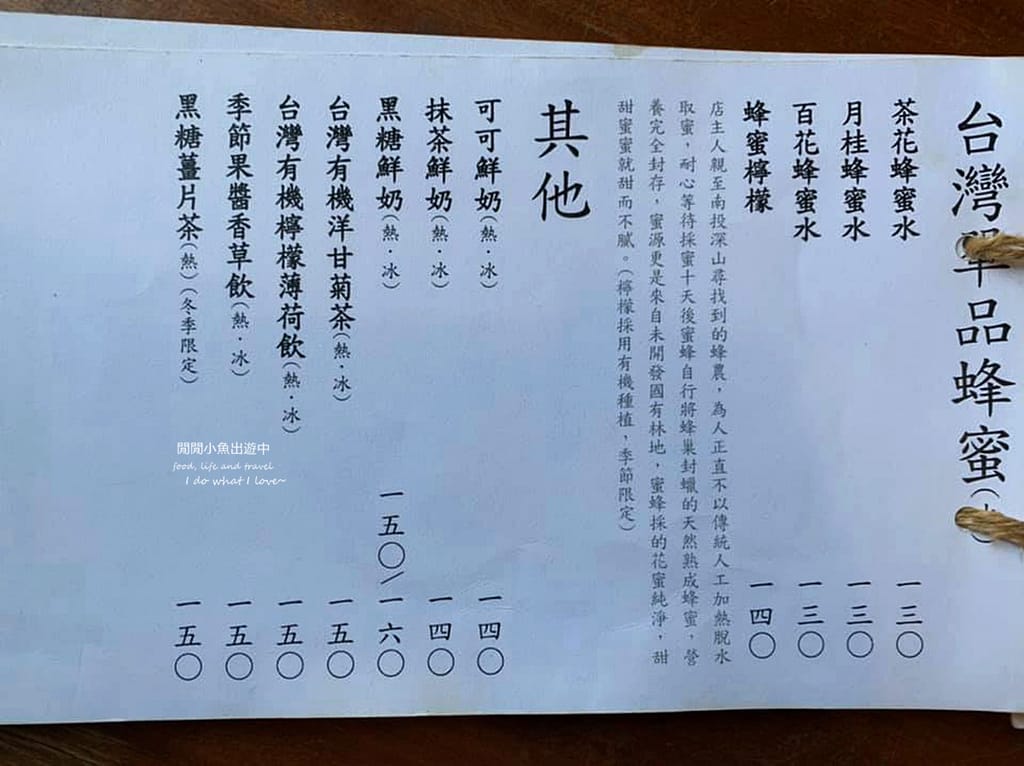 台灣單品蜂蜜
茶花蜂蜜水 一三〇
月桂蜂蜜水 一三〇
百花蜂蜜水 一三〇
蜂蜜檸檬 一四〇
店主人親至南投深山尋找到的蜂農，為人正直不以傳統人工加熱脫水
取蜜，耐心等待採蜜十天後蜜蜂自行將蜂巢封蠟的天然熟成蜂蜜，營
養完全封存，蜜源更是來自未開發國有林地，蜜蜂採的花蜜純淨，甜
甜蜜蜜就甜而不膩。（檸檬採用有機種植，季節限定）
其他
可可鮮奶（熱．冰） 一四〇
抹茶鮮奶（熱．冰） 一四〇
黑糖鮮奶（熱．冰） 一五〇/一六〇
台灣有機洋甘菊茶（熱．冰） 一五〇
台灣有機檸檬薄荷飲（熱．冰） 一五〇
季節果醬香草飲（熱．冰） 一五〇
黑糖薑片茶（熱）（冬季限定） 一五〇
閒閒小魚出遊中
food, life and travel
I do what I love~